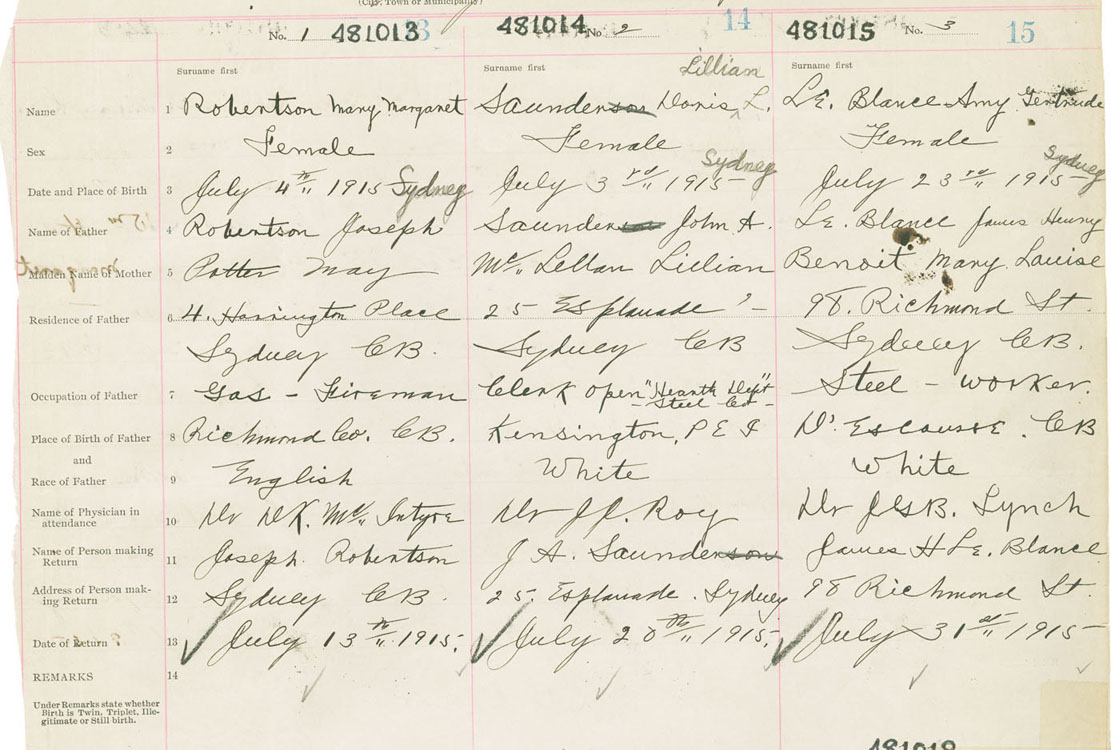 (City, Town or Municipality)
No. 1 481013 13 481014 No. 2 14 481015 No. 3 15
Surname first Surname first Lillian Surname first
Name 1 Robertson Mary Margaret Saunderson Doris L. LE. Blance Amy Gertrude
Sex 2 Female Female Female
Date and Place of Birth 3 July 4th 1915 Sydney July 3rd 1915 Sydney July 23rd 1915 Sydney
Name of Father 4 Robertson Joseph Saunderson John A. LE. Blance James Henry
Maiden Name of Mother 5 Potter May Mc. Lellan Lillian Benoit Mary Louise
Residence of Father 6 4. Harrington Place 25 Esplanade - 98. Richmond St.
Sydney CB. Sydney CB Sydney CB.
Occupation of Father 7 Gas - Fireman Clerk Open "Hearth Dept" Steel - Worker.
- Steel Co -
Place of Birth of Father 8 Richmond Co. CB. Kensington, PEI D'Escousse. CB
and
Race of Father 9 English White White
Name of Physician in attendance 10 Dr DK. Mc. Intyre Dr J.J. Roy Dr JGB. Lynch
Name of Person making Return 11 Joseph Robertson J A. Saunderson James H LE. Blance
Address of Person making Return 12 Sydney CB. 25. Esplanade. Sydney 98 Richmond St.
Date of Return 13 July 13th 1915. July 20th 1915. July 31st 1915
REMARKS 14
Under Remarks state whether
Birth is Twin, Triplet, Ille-
gitimate or Still birth.